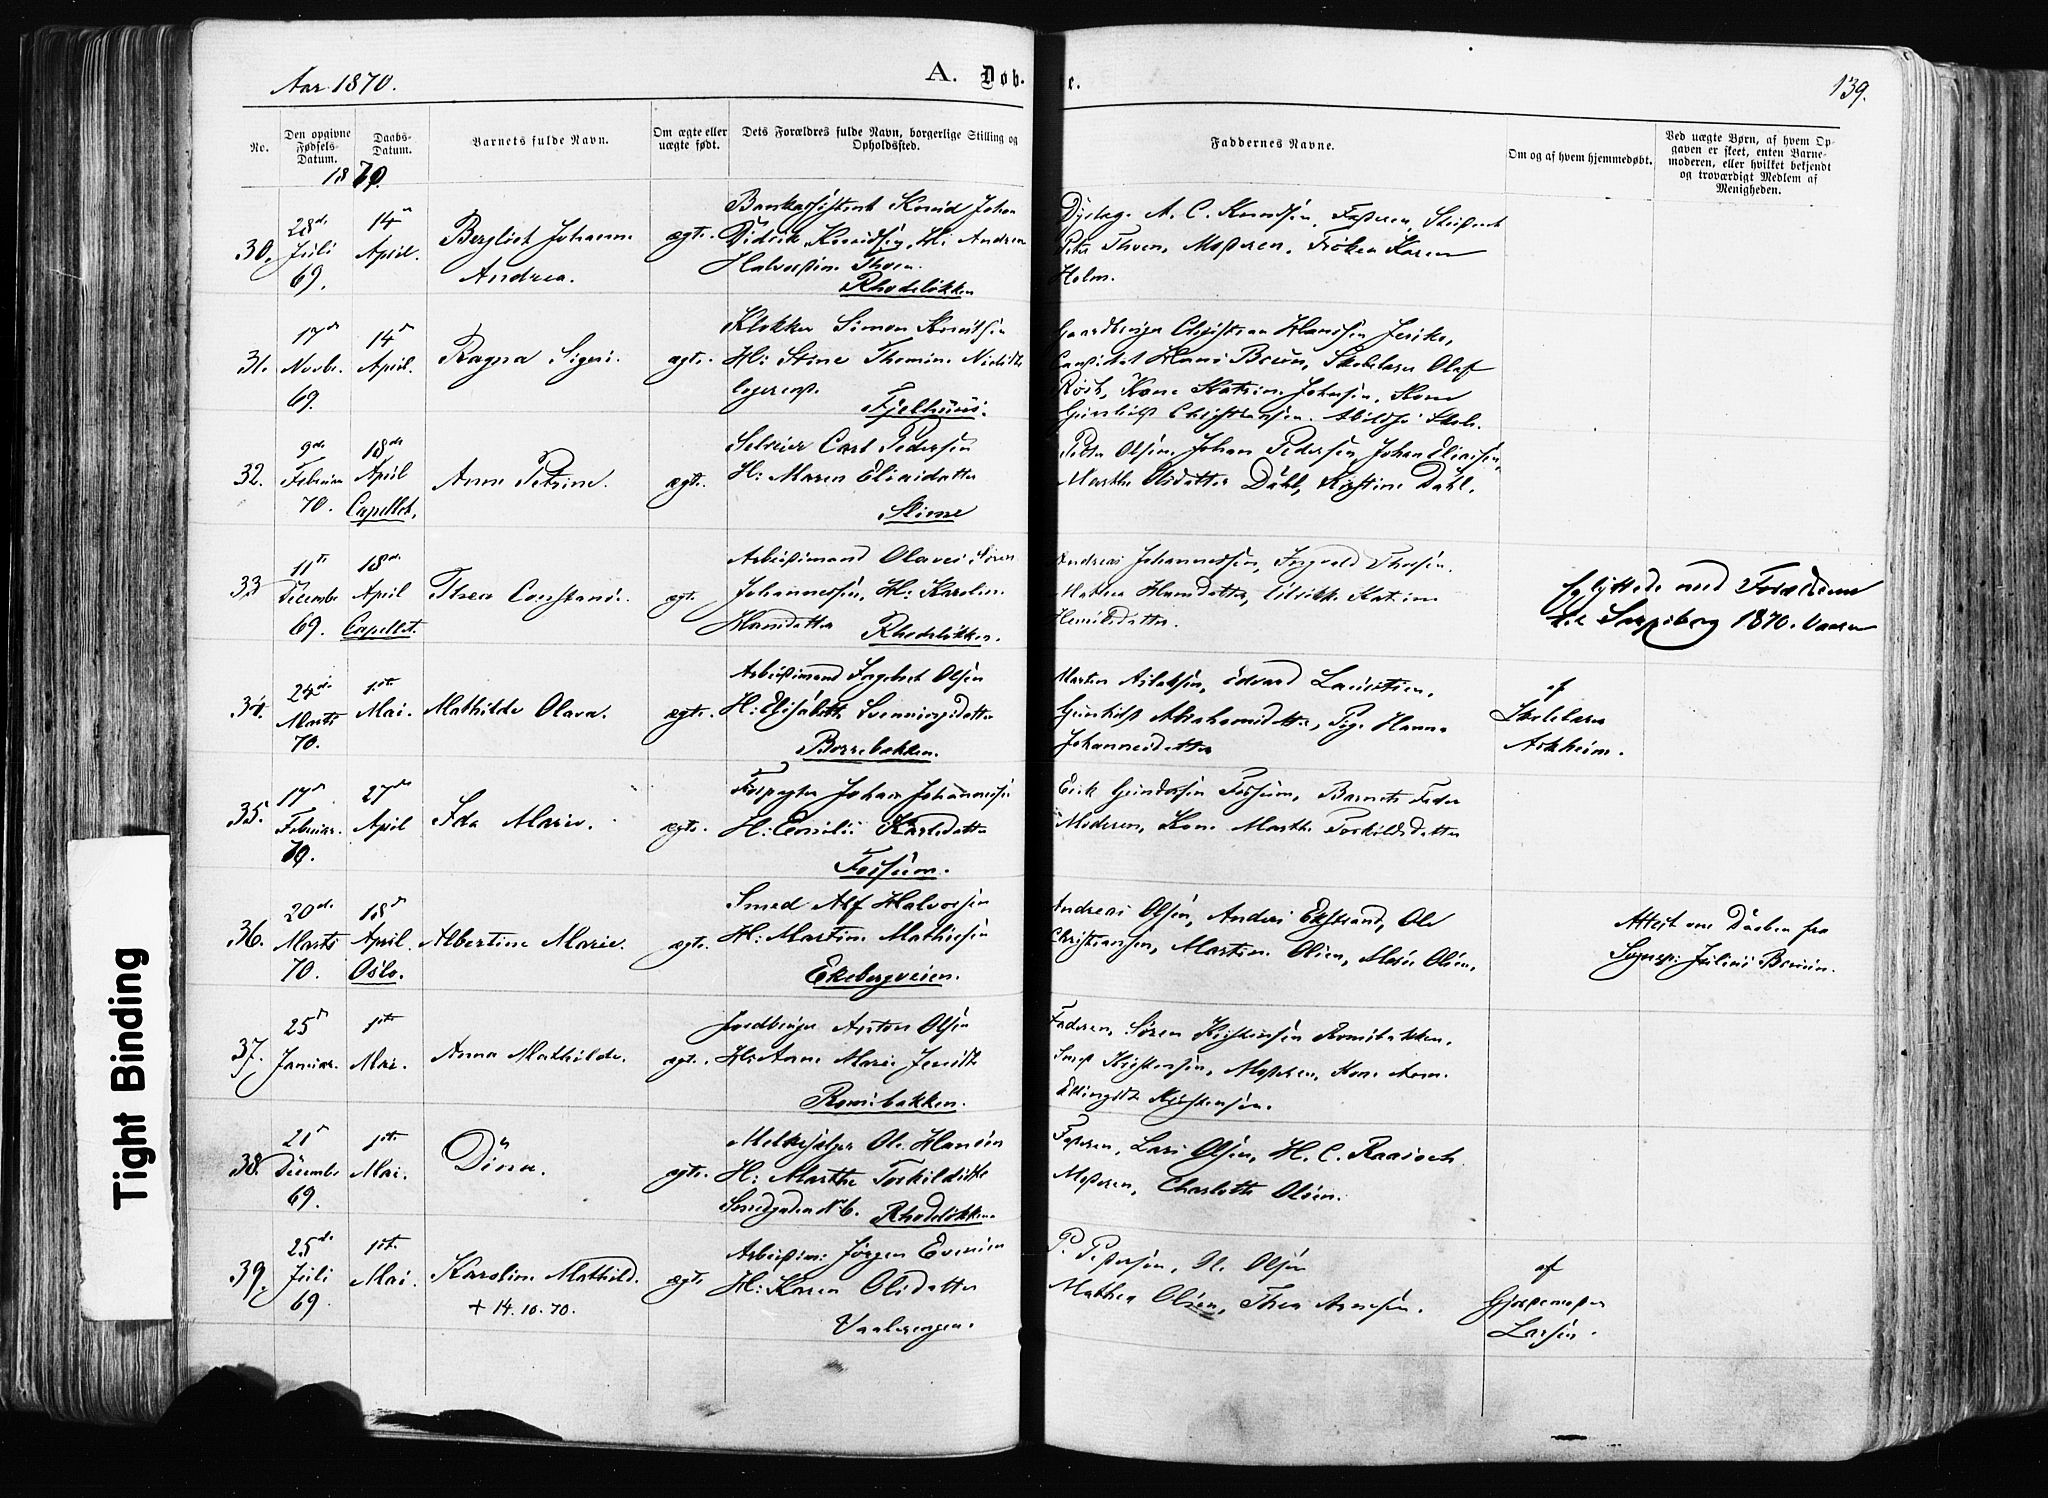 Aar 1870.
A. Døb-
te.
139.
No.
Den opgivne Fødsels-Datum.
Daabs-Datum.
Barnets fulde Navn.
Om ægte eller uægte født.
Dets Forældres fulde Navn, borgerlige Stilling og Opholdssted.
Faddernes Navne.
Om og af hvem hjemmedøbt.
Ved uægte Børn, af hvem Op-
gaven er skeet, enten Barne-
moderen, eller hvilket bekjendt
og troværdigt Medlem af
Menigheden.
1870.
30.
28de
Juli
69.
14de
April.
Bergliot Johanne
Andrea.
ægte.
Bankassistent Knud Johan
Didrik Knudsen, H: Andrea
Halvorsine Thoen.
Rhodeløkken
A. C. Knudsen, Fasteren, Skibsmt
Peter Thoen, Mosteren, Frøken Karen
Holm.
31.
17de
Novbr.
69.
14de
April.
Ragna Sigri.
ægte.
Klokker Simon Knutsen
H: Stine Thomine
Fjelhuus.
Gaardbruger Christian Hansen
Hans Bruun, Skolelærer Olaf
Kone Katrine Johnsen, Kone
Christensen. Abildsø Skole.
32.
9de
Februar
70.
18de
April
Capellet.
Anne Petrine.
ægte.
Selveier Carl Pedersen
H: Maren Eliasdatter
Peter Olsen, Johan Pedersen, Johan Eliasen,
Marthe Olsdatter Dahl, Kirstine Dahl.
33
11te
Decembr
69.
18de
April
Capellet.
Thea Constance.
ægte.
Arbeidsmand Olaves
Johannessen, H: Karoline
Hansdatter
Rhodeløkken.
Andreas Johannessen, Ingvald Thorsen.
Mathea Hansdatter, Katrine
Henriksdatter.
flyttede med Forældrene
til Sarpsborg 1870. Vaaren
34.
24de
Marts
70.
1ste
Mai.
Mathilde Olava.
ægte.
Arbeidsmand Ingebret Olsen
H: Elisabeth Svenningsdatter
Borrebakken.
Morten Aslaksen, Edvard Lauritsen.
Gunhild Abrahamsdatter, Pige Hanna
Johannesdatter
af
Skolelærer
Askheim.
35.
17de
Februar.
70.
27de
April
Ida Marie.
ægte.
Forpagter Johan Johannesen
H: Emilie Karlsdatter
Fossum.
Erik Gundersen Fossum, Barnets Fader
Moderen, Kone Marthe Torkildsdatter
36.
20de
Marts
70.
18de
April.
Oslo.
Albertine Marie.
ægte.
Smed Alf Halvorsen
H: Martine Mathisen
Ekebergveien.
Andreas Olsen, Anders Ekstrand, Ole
Christiansen, Martine Olsen, Marie Olsen.
Attest om Daaben fra
Sognepr: Julius Bruun.
37.
25de
Januar.
1ste
Mai.
Anna Mathilde.
ægte.
Jordbruger Anton Olsen
H: Anne Marie Jensdtr
Romsbakken.
Faderen, Søren Kristensen Romsbakken.
Kristensen, Mosteren, Kone Anne
Ellingsdtr Kristensen.
38.
21de
Decembr
69.
1ste
Mai.
Dina.
ægte.
Melkesælger Ole Hansen
H: Marthe Torkildsdtr
Smedgaden No 6. Rhodeløkken.
Fasteren, Lars Olsen, H. C. Raaisoch
Mosteren, Charlotte Olsen.
39.
25de
Juli
69.
1ste
Mai.
Karoline Mathild.
+ 14.10.70.
ægte
Arbeidsm: Jørgen Evensen
H: Karen Olsdatter
Vaalerengen.
P. Pettersen, N. Olsen
Mathea Olsen, Thea Arnesen.
af
Larsen.
Tight Binding